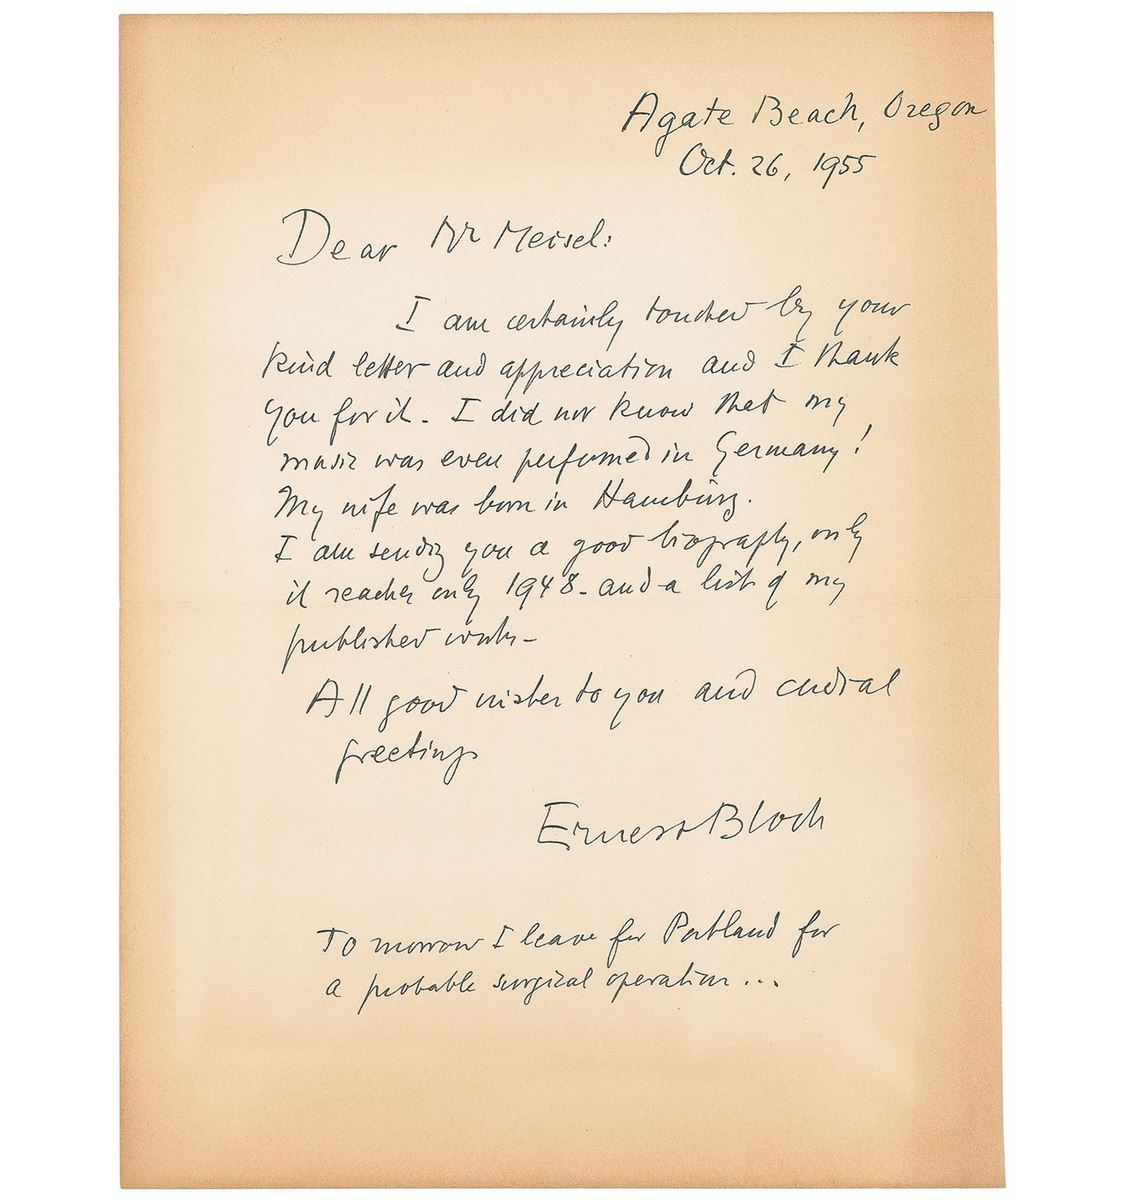 Agate Beach, Oregon
Oct. 26, 1955
Dear Mr Meisel:
I am certainly touched by your
kind letter and appreciation and I thank
you for it. I did not know that my
music was even performed in Germany!
My wife was born in Hamburg.
I am sending you a good biography, only
it reaches only 1948 - and a list of my
published works -
All good wishes to you and cordial
greetings
Ernest Bloch
To morrow I leave for Portland for
a probable surgical operation...